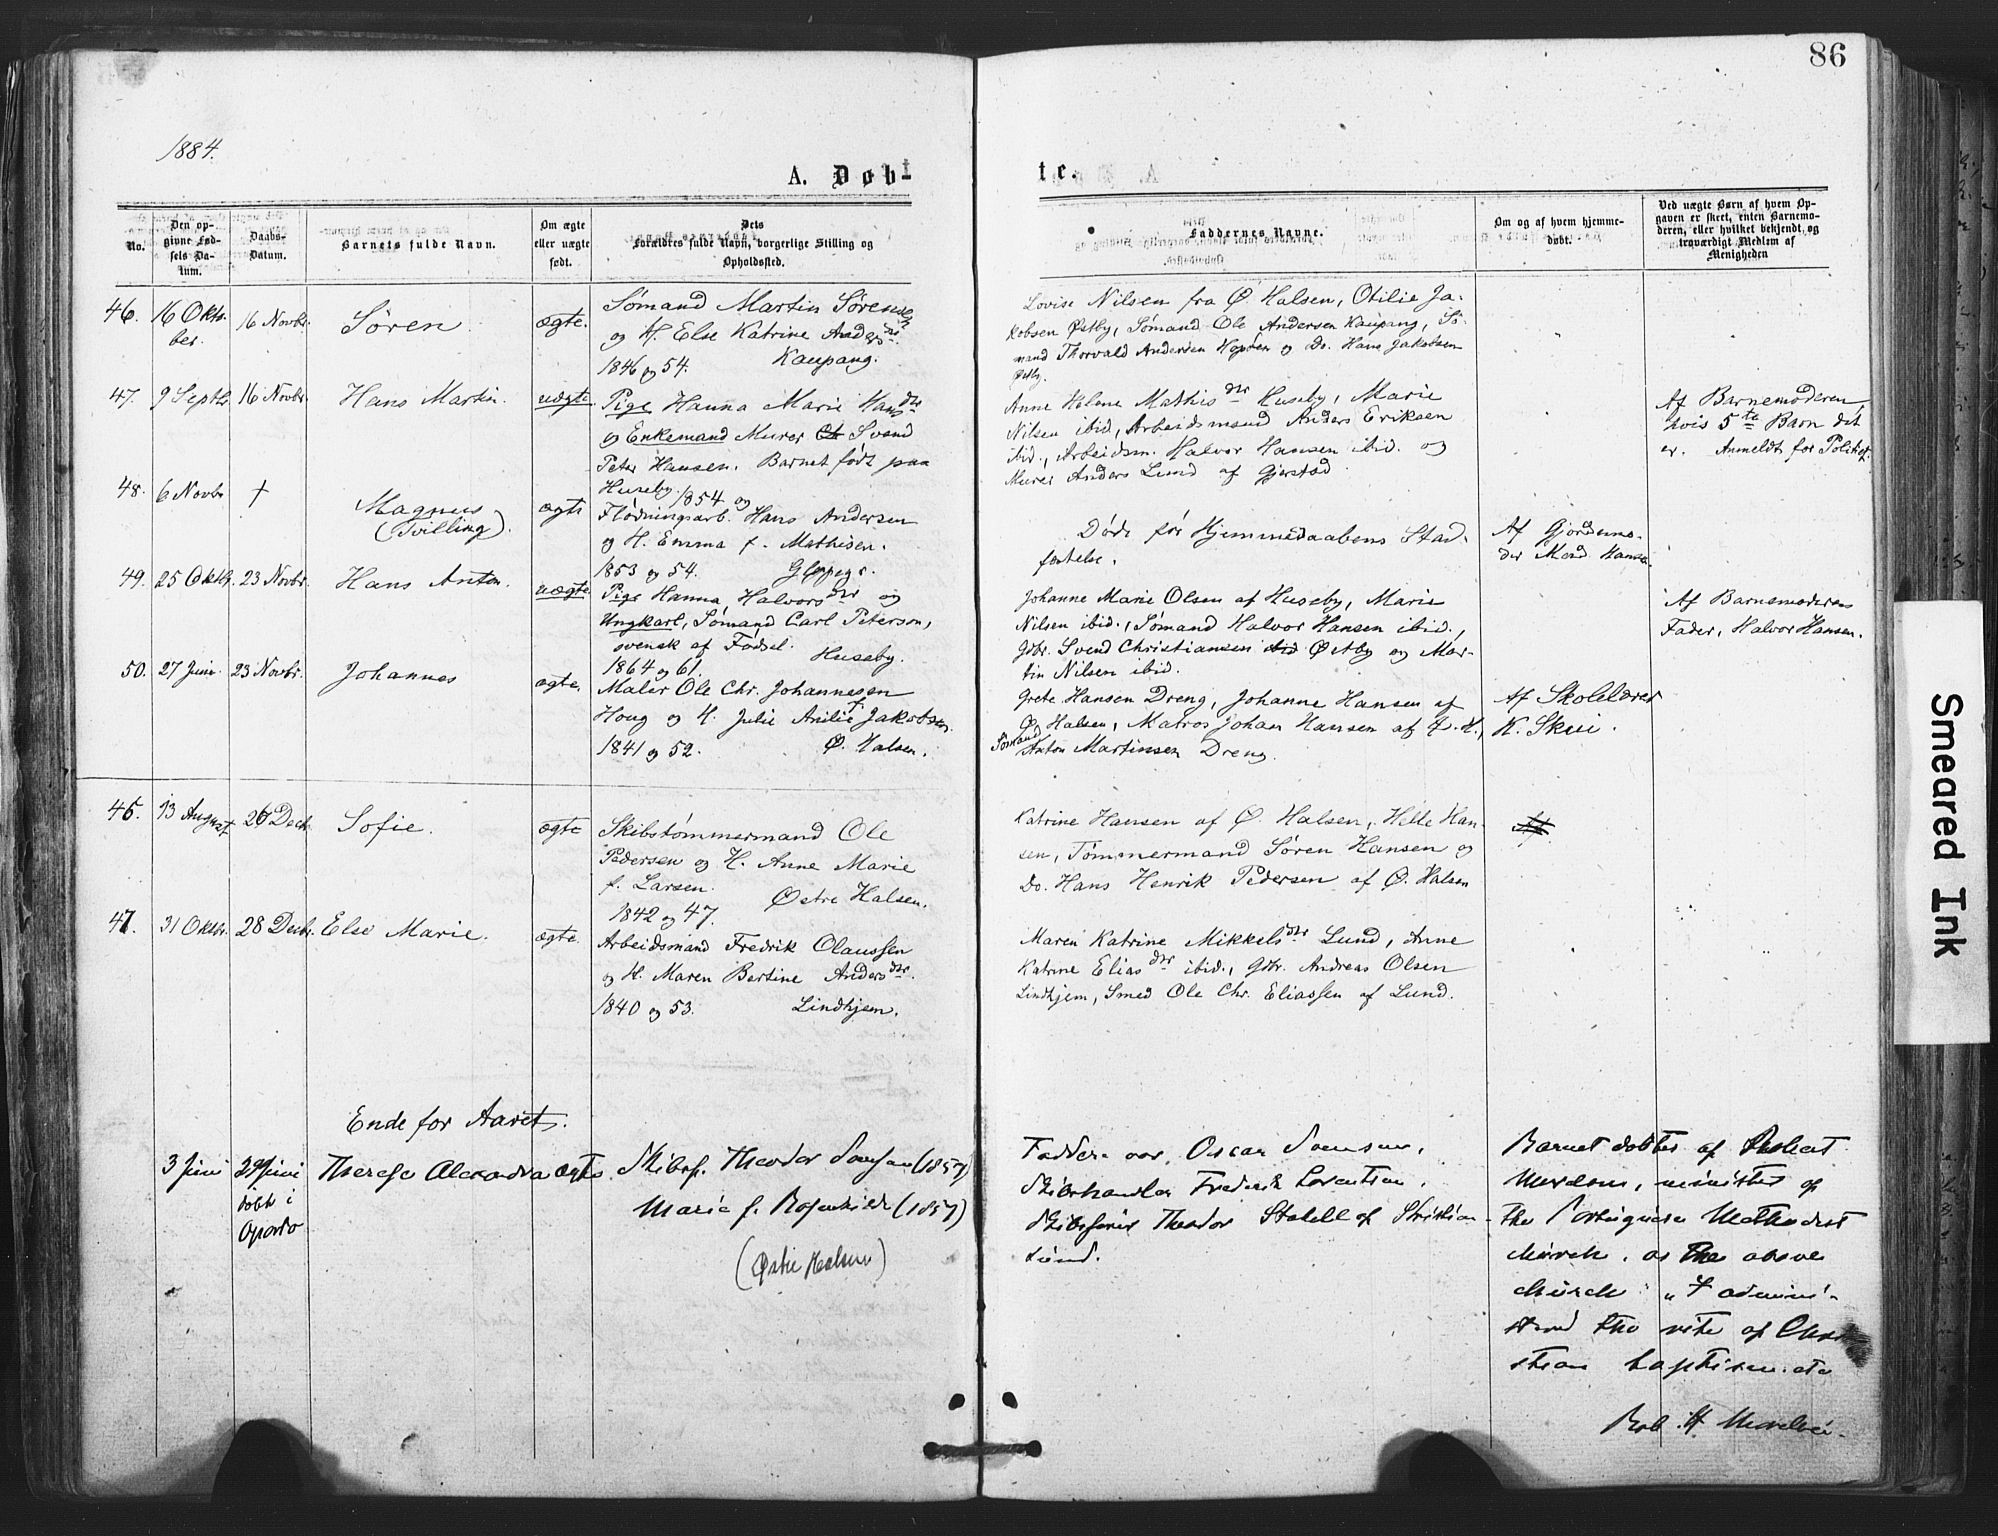 86
1884.
A. Døbt
te.
No.
Den op-
givne Fød-
sels Da-
tum.
Daabs-
Datum.
Barnets fulde Navn.
Om ægte
eller uægte
født.
Dets
Forældres fulde Navn, borgerlige Stilling og
Opholdssted.
Faddernes Navne.
Om og af hvem hjemme-
døbt.
Ved uægte Børn af hvem Op-
gaven er skeet, enten Barnemo-
deren, eller hvilket bekjendt og
troværdigt Medlem af
Menigheden
46. 16 Oktr. 16 Novbr. Søren ægte. Sømand Martin Sørensen
ber. og H. Else Katrine Anders dtr.
1846 og 54. Kaupang.
Lovise Nilsen fra Ø. Halsen, Otilie Ja-
kobsen Østby, Sømand Ole Andersen Kaupang, Sø-
mand Thorvald Andersen og Do. Hans Jakobsen
Østby.
47. 9 Septbr. 16 Novbr. Hans Martin. uægte. Pige Hanna Marie Hans dtr
og Enkemand Murer Svend
Peter Hansen. Barnet født paa
Huseby. 1854 og
Anne Helene Mathis dtr Huseby, Marie
Nilsen ibid, Arbeidsmand Anders Eriksen
ibid., Arbeidsm. Halvor Hansen ibid. og
Murer Anders Lund af Gjerstad.
Af Barnemoderen,
hvis 5te Barn det
er. Anmeldt for Politiet.
48. 6 Novbr † Magnus ægte Flødningsarb. Hans Andersen
(Tvilling). og H. Emma f. Mathisen.
1853 og 54.
Døde før Hjemmedaabens Stad-
festelse.
Af Gjordemo-
der Mad. Hansen.
49. 25 Oktbr. 23 Novbr. Hans Anton. uægte. Pige Hanna Halvors dtr og
Ungkarl, Sømand Carl Peterson,
svensk af Fødsel.
1864 og 61. Huseby.
Johanne Marie Olsen af Huseby, Marie
Nilsen ibid., Sømand Halvor Hansen ibid.,
Gbr. Svend Christiansen ibid Østby og Mar-
tin Nilsen ibid.
Af Barnemoderens
Fader, Halvor Hansen.
50. 27 Juni 23 Novbr. Johannes ægte. Maler Ole Chr. Johannesen
Houg og H. Julie Amilie f. Jakobsen.
1841 og 52. Ø. Halsen.
Grete Hansen Dreng, Johanne Hansen af
Ø. Halsen, Matros Johan Hansen af Ø. H.,
Sømand Anton Martinsen Dreng.
Af Skolelærer
K. Skui.
46. 13 August 26 Decbr. Sofie. ægte Skibstømmermand Ole
Pedersen og H. Anne Marie
f. Larsen. Østre Halsen.
1842 og 47.
Katrine Hansen af Ø. Halsen, Helle Han-
sen, Tømmermand Søren Hansen og
Do. Hans Henrik Pedersen af Ø. Halsen
Af
47. 31 Oktbr. 28 Decbr. Else Marie. ægte. Arbeidsmand Fredrik Olaussen
og H. Maren Bertine Anders dtr.
1840 og 53. Lindhjem.
Maren Katrine Mikkels dtr Lund, Anne
Katrine Elias dtr ibid., Gbr. Andreas Olsen
Lindhjem, Smed Ole Chr. Eliassen af Lund.
Ende for Aaret.
3 Juni 29 Juni Therese Alexandra ægte Skibsf. Theodor (1857)
døbt i Marie f. (1857)
Oporto (Østre Halsen)
Faddere var Oscar
Skibshandler Frederik Lorentsen.
Skibsfører Theodor af Kristian-
sund.
Barnet døbtes af
minister of
the Portuguese Methodist
church. as the above
church " I admini-
stered the rite of Chri-
stian baptism. etc
Rob. H.
Smeared Ink